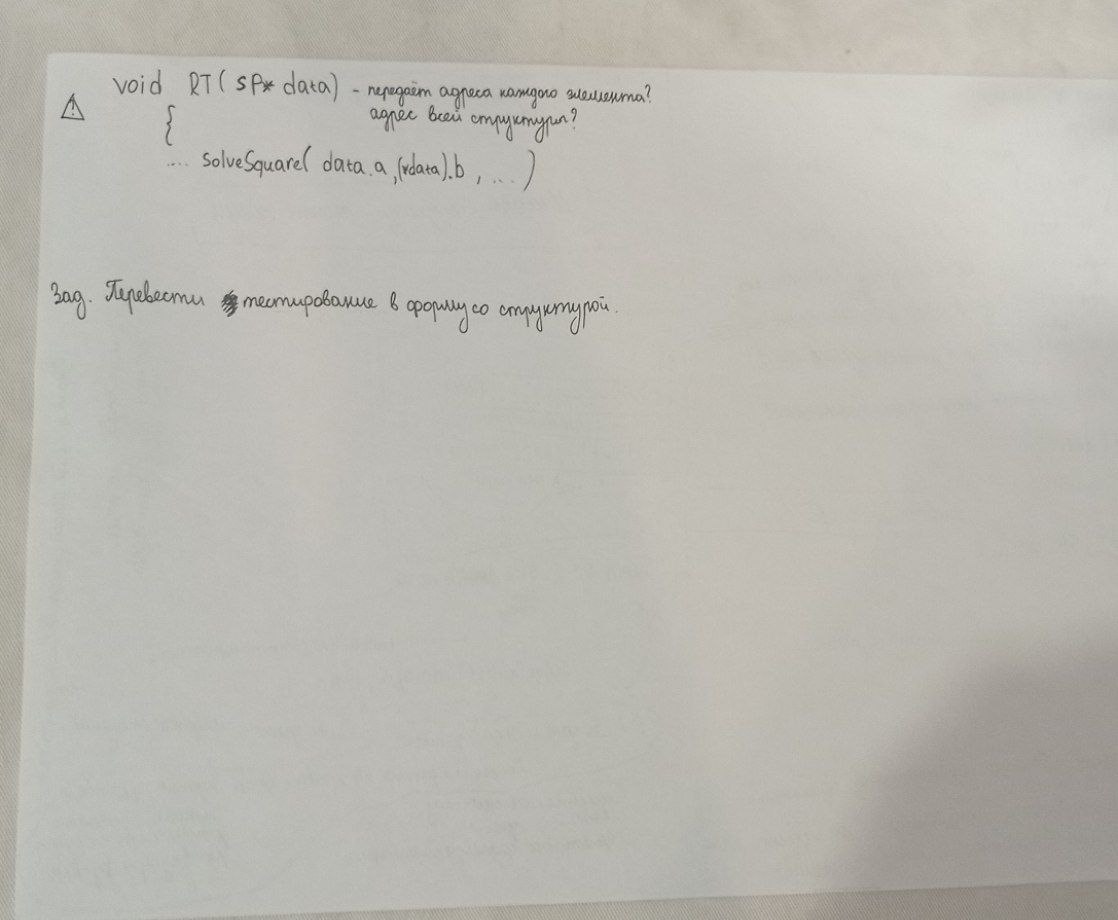 void RT(SP* data) - передаём адреса каждого элемента?
⚠ адрес всей структуры?
{
... SolveSquare( data.a,(*data).b , ... )
Зад. Перевести тестирование в форму со структурой.